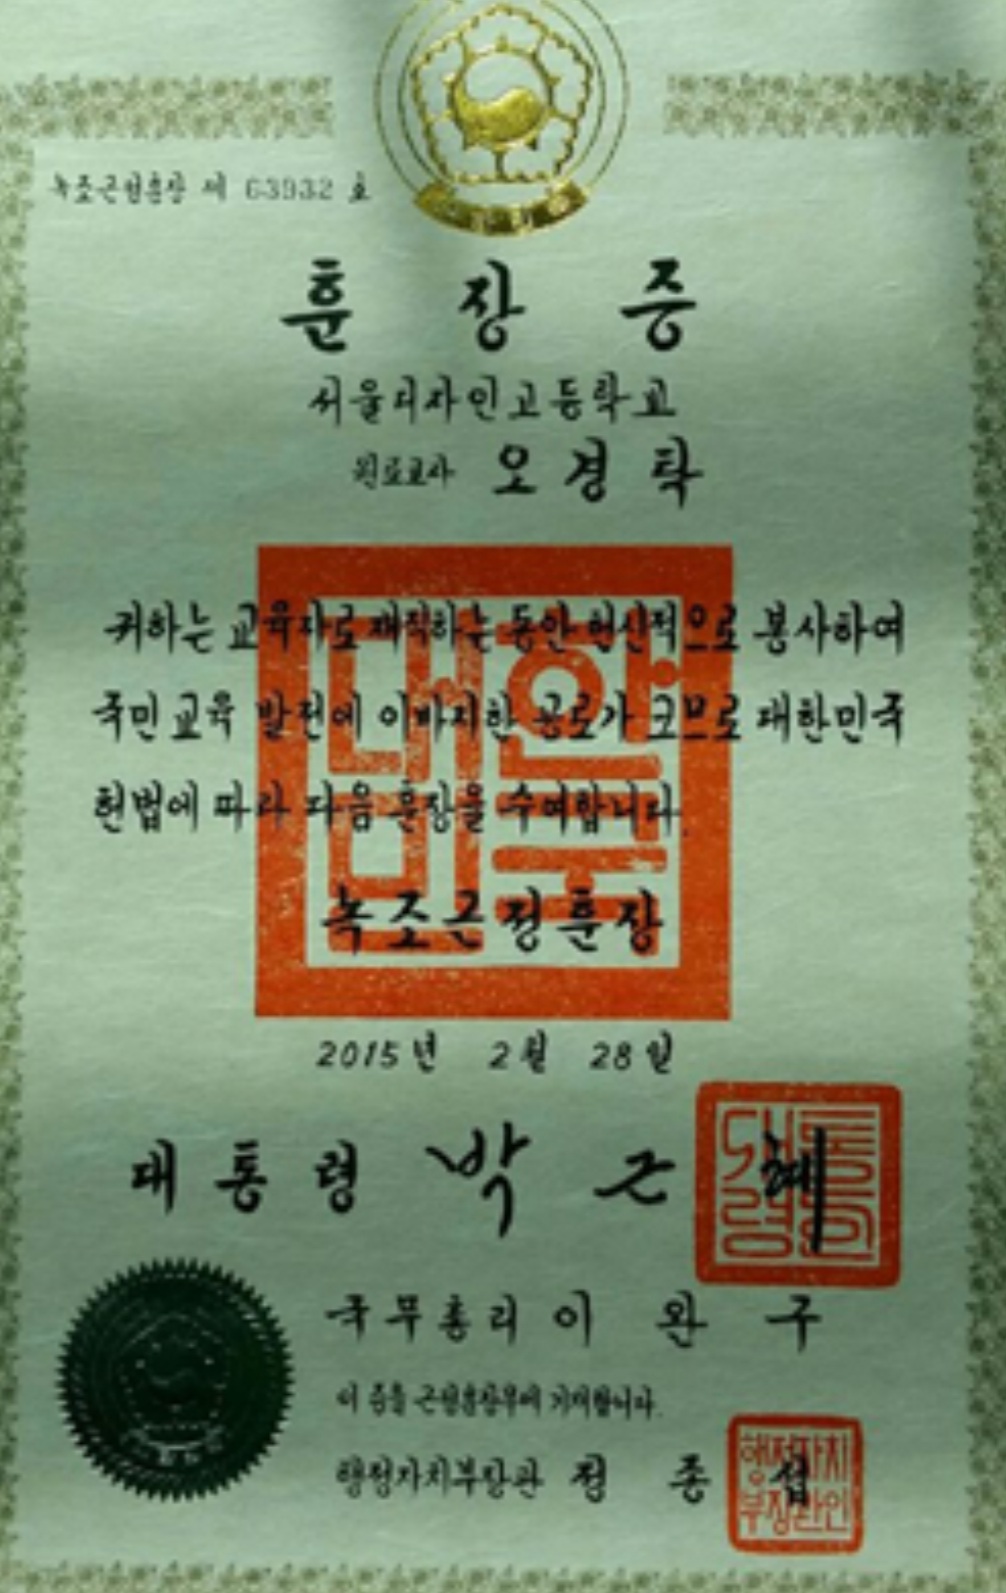 녹조근정훈장 제 63932 호
훈장증
서울디자인고등학교
원로교사 오경탁
귀하는 교육자로 재직하는 동안 헌신적으로 봉사하여
국민교육 발전에 이바지한 공로가 크므로 대한민국
헌법에 따라 다음 훈장을 수여합니다.
대한
민국
녹조근정훈장
2015년 2월 28일
대통령 박근혜
대통
령인
국무총리 이완구
이 증을 근정훈장부에 기재합니다.
행정자치부장관 정종섭
행정자치
부장관인